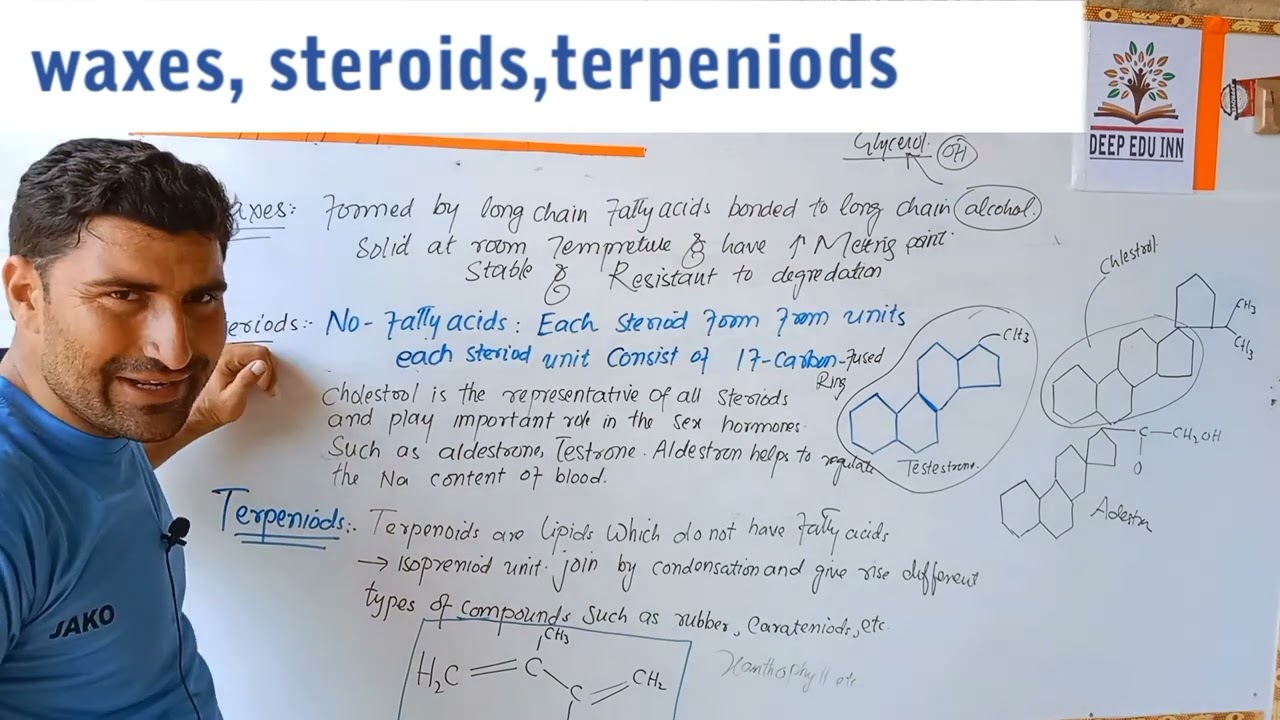 waxes, steroids,terpeniods
DEEP EDU INN
Glycerol. OH
axes: Formed by long chain Fatty acids bonded to long chain alcohol.
Solid at room Tempreture & have ↑ Melting point.
Stable & Resistant to degredation
eriods:- No-Fatty acids: Each Steriod Form From units
each steriod unit Consist of 17-Carbon-fused
Ring
Cholestool is the representative of all Steriods
and play important role in the Sex hormones.
Such as aldestrone, Testrone. Aldestron helps to regulate
the Na content of blood.
CH3
Testestrone.
Chlestrol
CH3
CH3
C—CH2OH
O
Adestrn
Terpeniods:. Terpenoids are Lipids which do not have Fatty acids
→ Isopreniod unit. join by condensation and give rise different
types of compounds such as rubber, Carateniods, etc.
Xanthophyll etc
CH3
H2C = C
C = CH2
JAKO